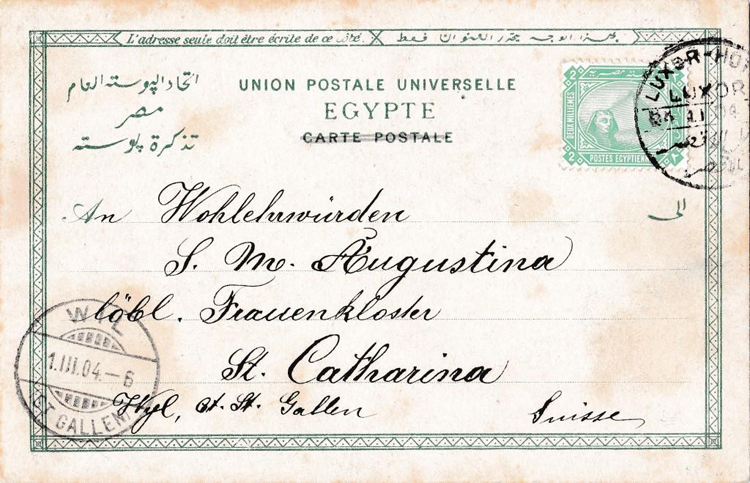 L'adresse seule doit être écrite de ce côté.
اتحاد البوسته العام
مصر
تذكرة بوسته
UNION POSTALE UNIVERSELLE
EGYPTE
CARTE POSTALE
2 2
DEUX MILLIEMES
POSTES EGYPTIENNES
2
LUXOR-HO
LUXOR
An Wohlehrwürden
الى
S. M. Augustina
löbl. Frauenkloster
St. Catharina
Wyl, Ct. St. Gallen Suisse
WYL
1.III.04.-6
ST. GALLEN